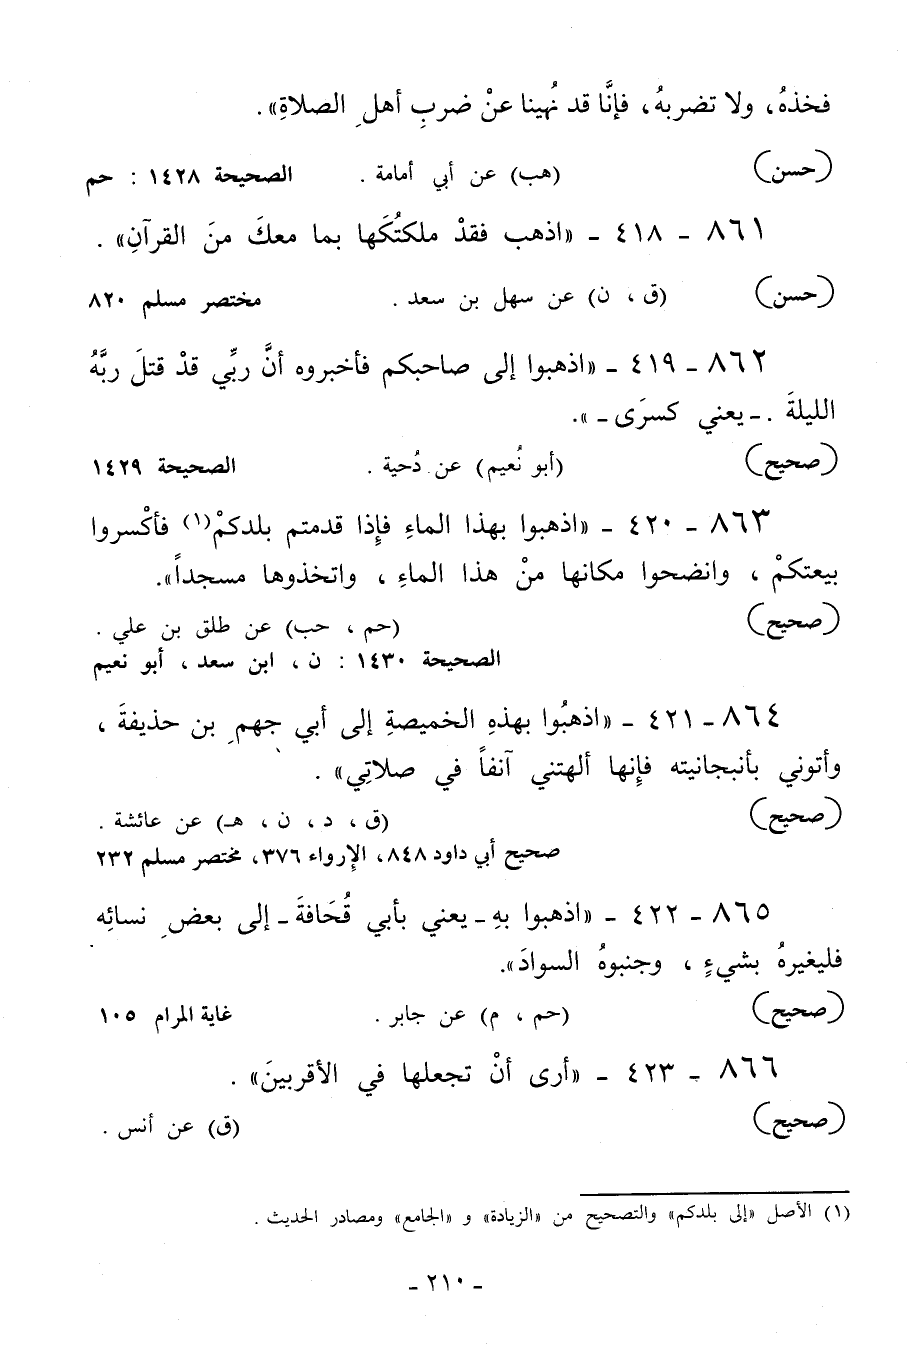 فخذهُ، ولا تضربهُ، فإنَّا قد نُهينا عنْ ضربِ أهلِ الصلاةِ».
(حسن) (هب) عن أبي أمامة . الصحيحة ١٤٢٨ : حم
٨٦١ - ٤١٨ - «اذهب فقدْ ملكتُكَها بما معكَ منَ القرآنِ» .
(حسن) (ق ، ن) عن سهل بن سعد . مختصر مسلم ٨٢٠
٨٦٢ - ٤١٩ - «اذهبوا إلى صاحبكم فأخبروه أنَّ ربِّي قدْ قتلَ ربَّهُ
الليلةَ . - يعني كسرَى - ».
(صحيح) (أبو نُعيم) عن دُحية . الصحيحة ١٤٢٩
٨٦٣ - ٤٢٠ - «اذهبوا بهذا الماءِ فإِذا قدمتم بلدكمْ(١) فأكْسروا
بيعتكمْ ، وانضحوا مكانها منْ هذا الماءِ ، واتخذوها مسجداً».
(صحيح) (حم ، حب) عن طلق بن علي .
الصحيحة ١٤٣٠ : ن ، ابن سعد ، أبو نعيم
٨٦٤ - ٤٢١ - «اذهبُوا بهذهِ الخميصةِ إلى أبي جهمِ بن حذيفةَ ،
وأتوني بأنبجانيته فإِنها ألهتني آنفاً في صلاتِي» .
(صحيح) (ق ، د ، ن ، هـ) عن عائشة .
صحيح أبي داود ٨٤٨، الإرواء ٣٧٦، مختصر مسلم ٢٣٢
٨٦٥ - ٤٢٢ - «اذهبوا بهِ - يعني بأبي قُحَافةَ - إلى بعضِ نسائِه
فليغيرهُ بشيءٍ ، وجنبوهُ السوادَ».
(صحيح) (حم ، م) عن جابر . غاية المرام ١٠٥
٨٦٦ - ٤٢٣ - «أرى أنْ تجعلها في الأقربينَ» .
(صحيح) (ق) عن أنس .
(١) الأصل «إلى بلدكم» والتصحيح من «الزيادة» و «الجامع» ومصادر الحديث .
- ٢١٠ -